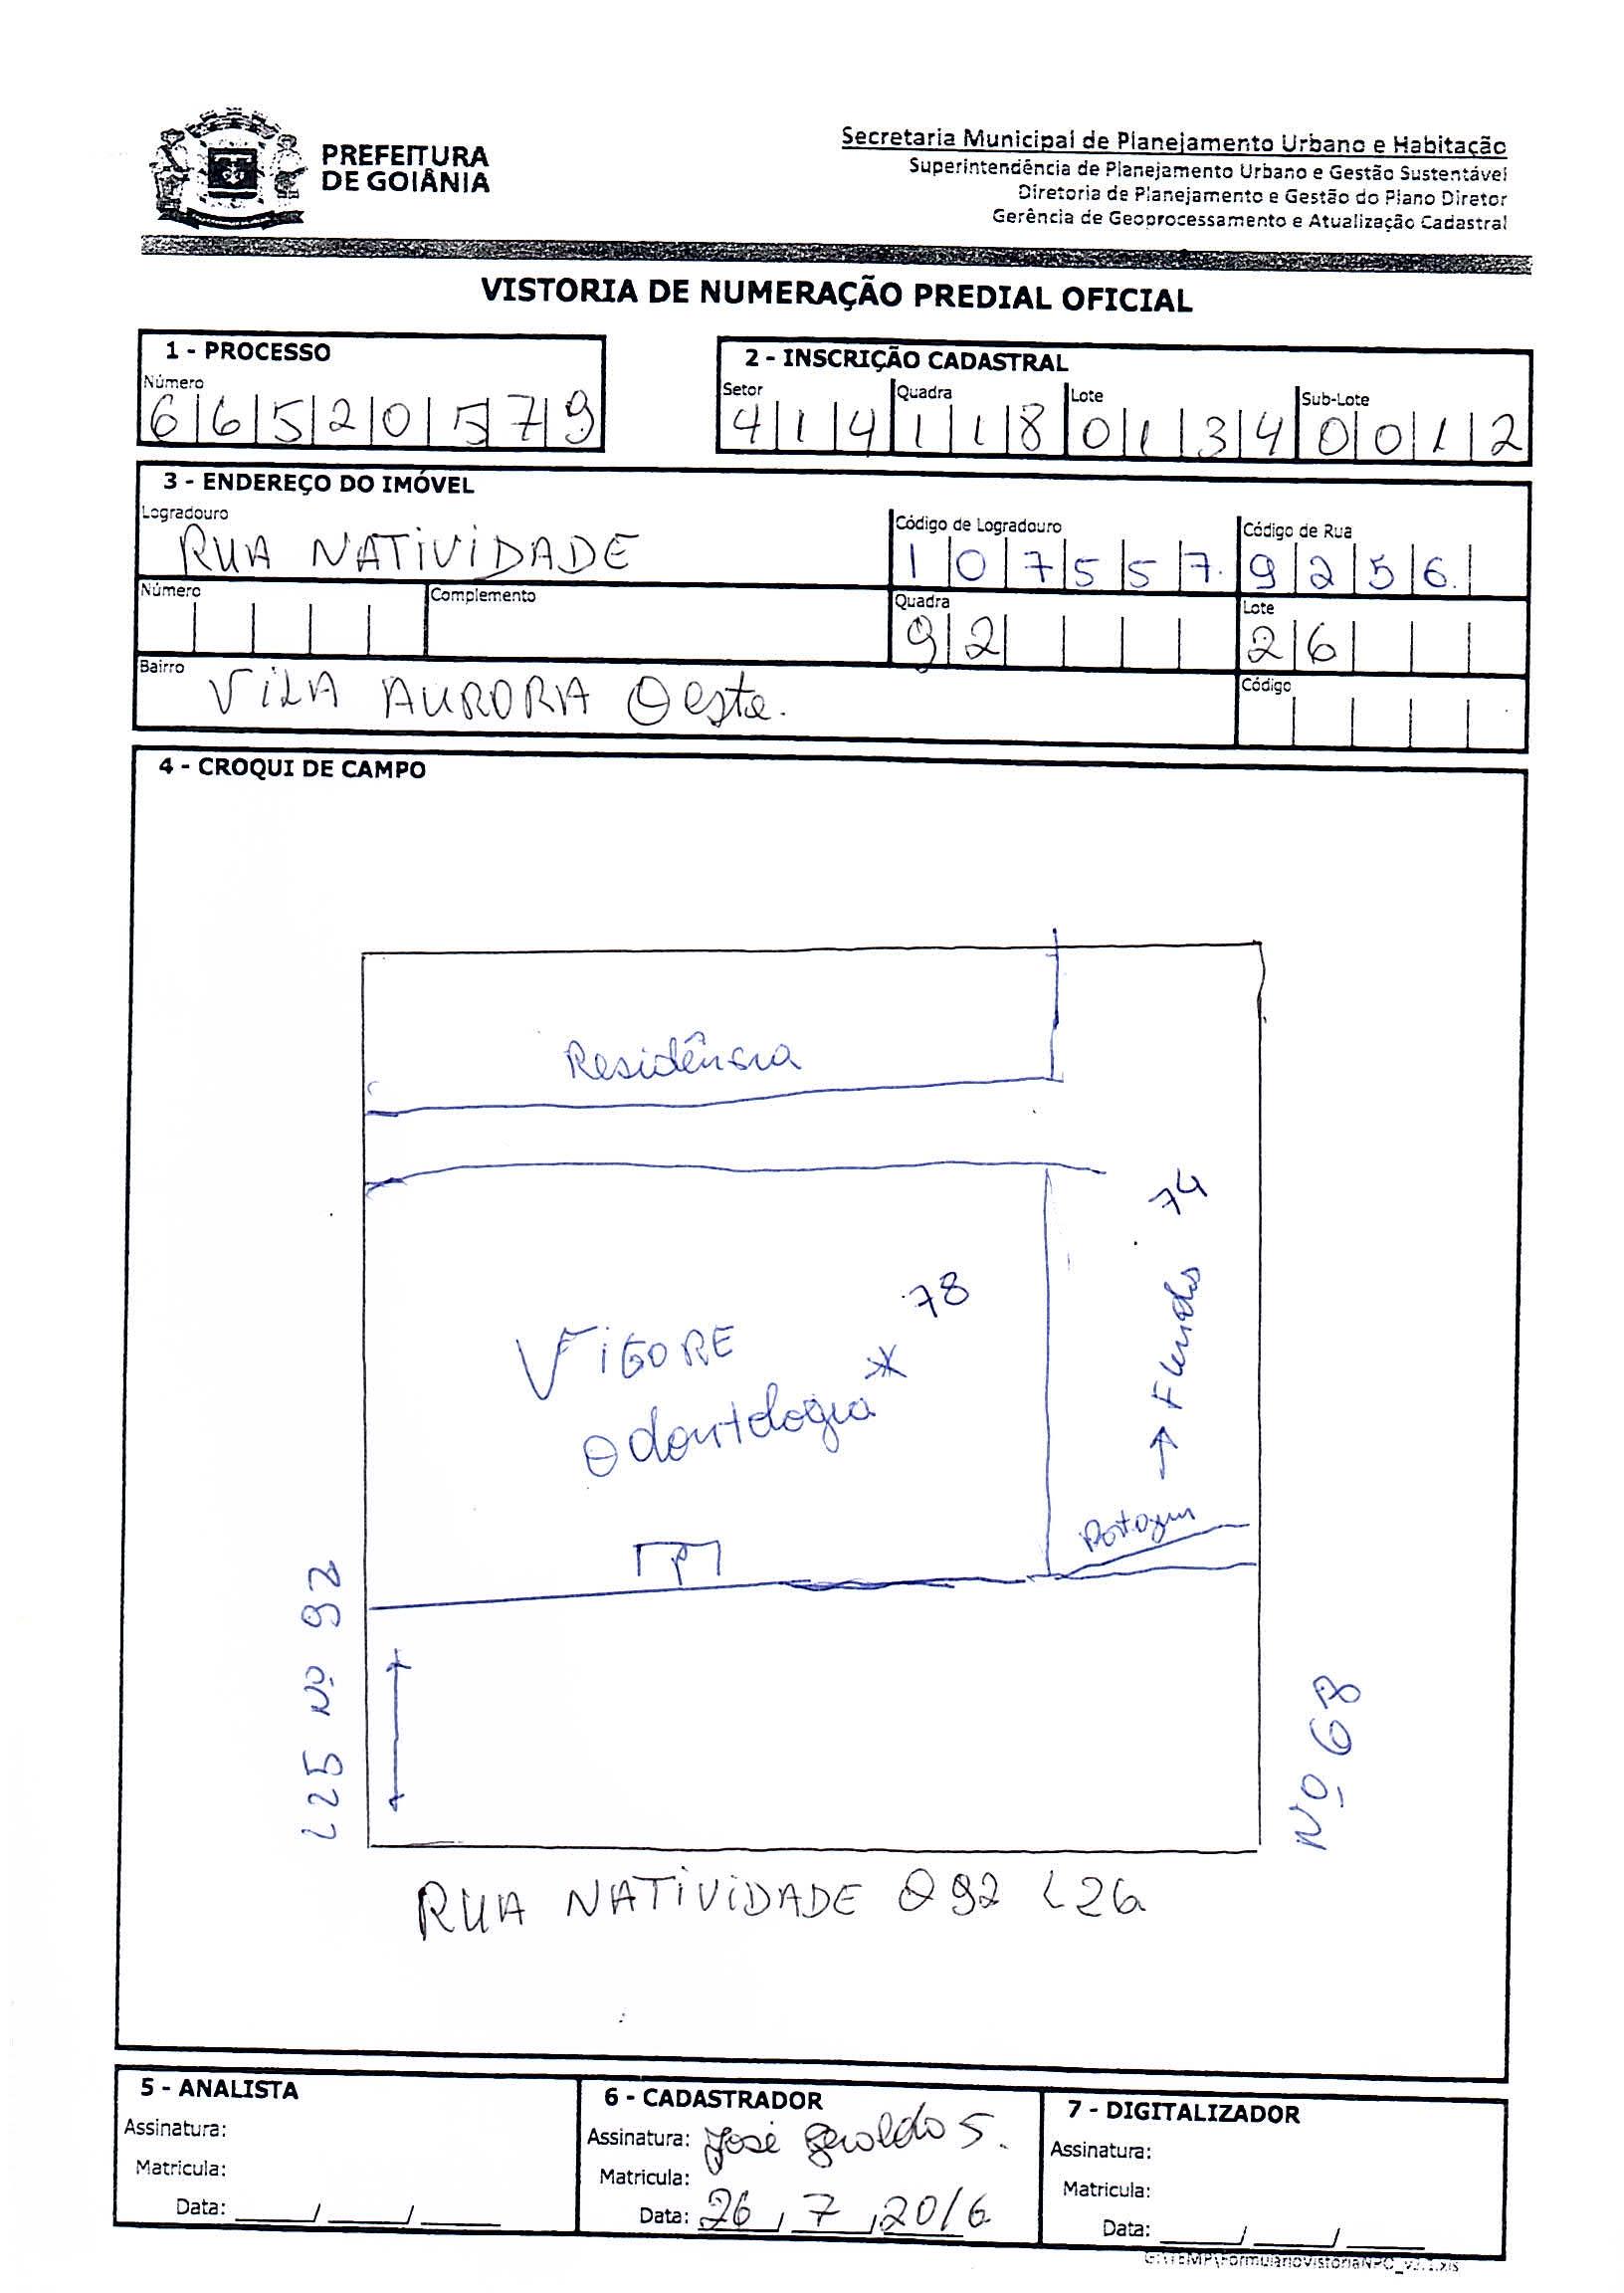 PREFEITURA
DE GOIÂNIA
Secretaria Municipal de Planejamento Urbano e Habitação
Superintendência de Planejamento Urbano e Gestão Sustentável
Diretoria de Planejamento e Gestão do Plano Diretor
Gerência de Geoprocessamento e Atualização Cadastral
VISTORIA DE NUMERAÇÃO PREDIAL OFICIAL
1 - PROCESSO
Número
66520579
2 - INSCRIÇÃO CADASTRAL
Setor Quadra Lote Sub-Lote
414 118 0134 0012
3 - ENDEREÇO DO IMÓVEL
Logradouro Código de Logradouro Código de Rua
RUA NATIVIDADE 107557. 9256.
Número Complemento Quadra Lote
92 26
Bairro Código
VILA AURORA Oeste.
4 - CROQUI DE CAMPO
Residência
74
78
VIGORE
odontologia*
→ Fundo
L25 Nº 92
Nº 68
RUA NATIVIDADE Q92 L26
5 - ANALISTA
Assinatura:
Matricula:
Data: ___/___/___
6 - CADASTRADOR
Assinatura: José Geraldo S.
Matricula:
Data: 26/7/2016
7 - DIGITALIZADOR
Assinatura:
Matricula:
Data: ___/___/___
G:\TEMP\FormularioVistoriaNPO_v3.1.xls